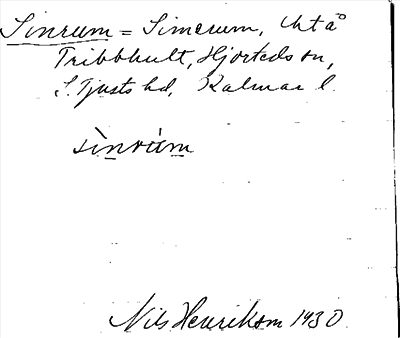 Sinrum = Simerum, Uht å
Tribbhult, Hjorteds sn,
S. Tjusts hd, Kalmar l.
sìnrúm
Nils Henrikson 1930